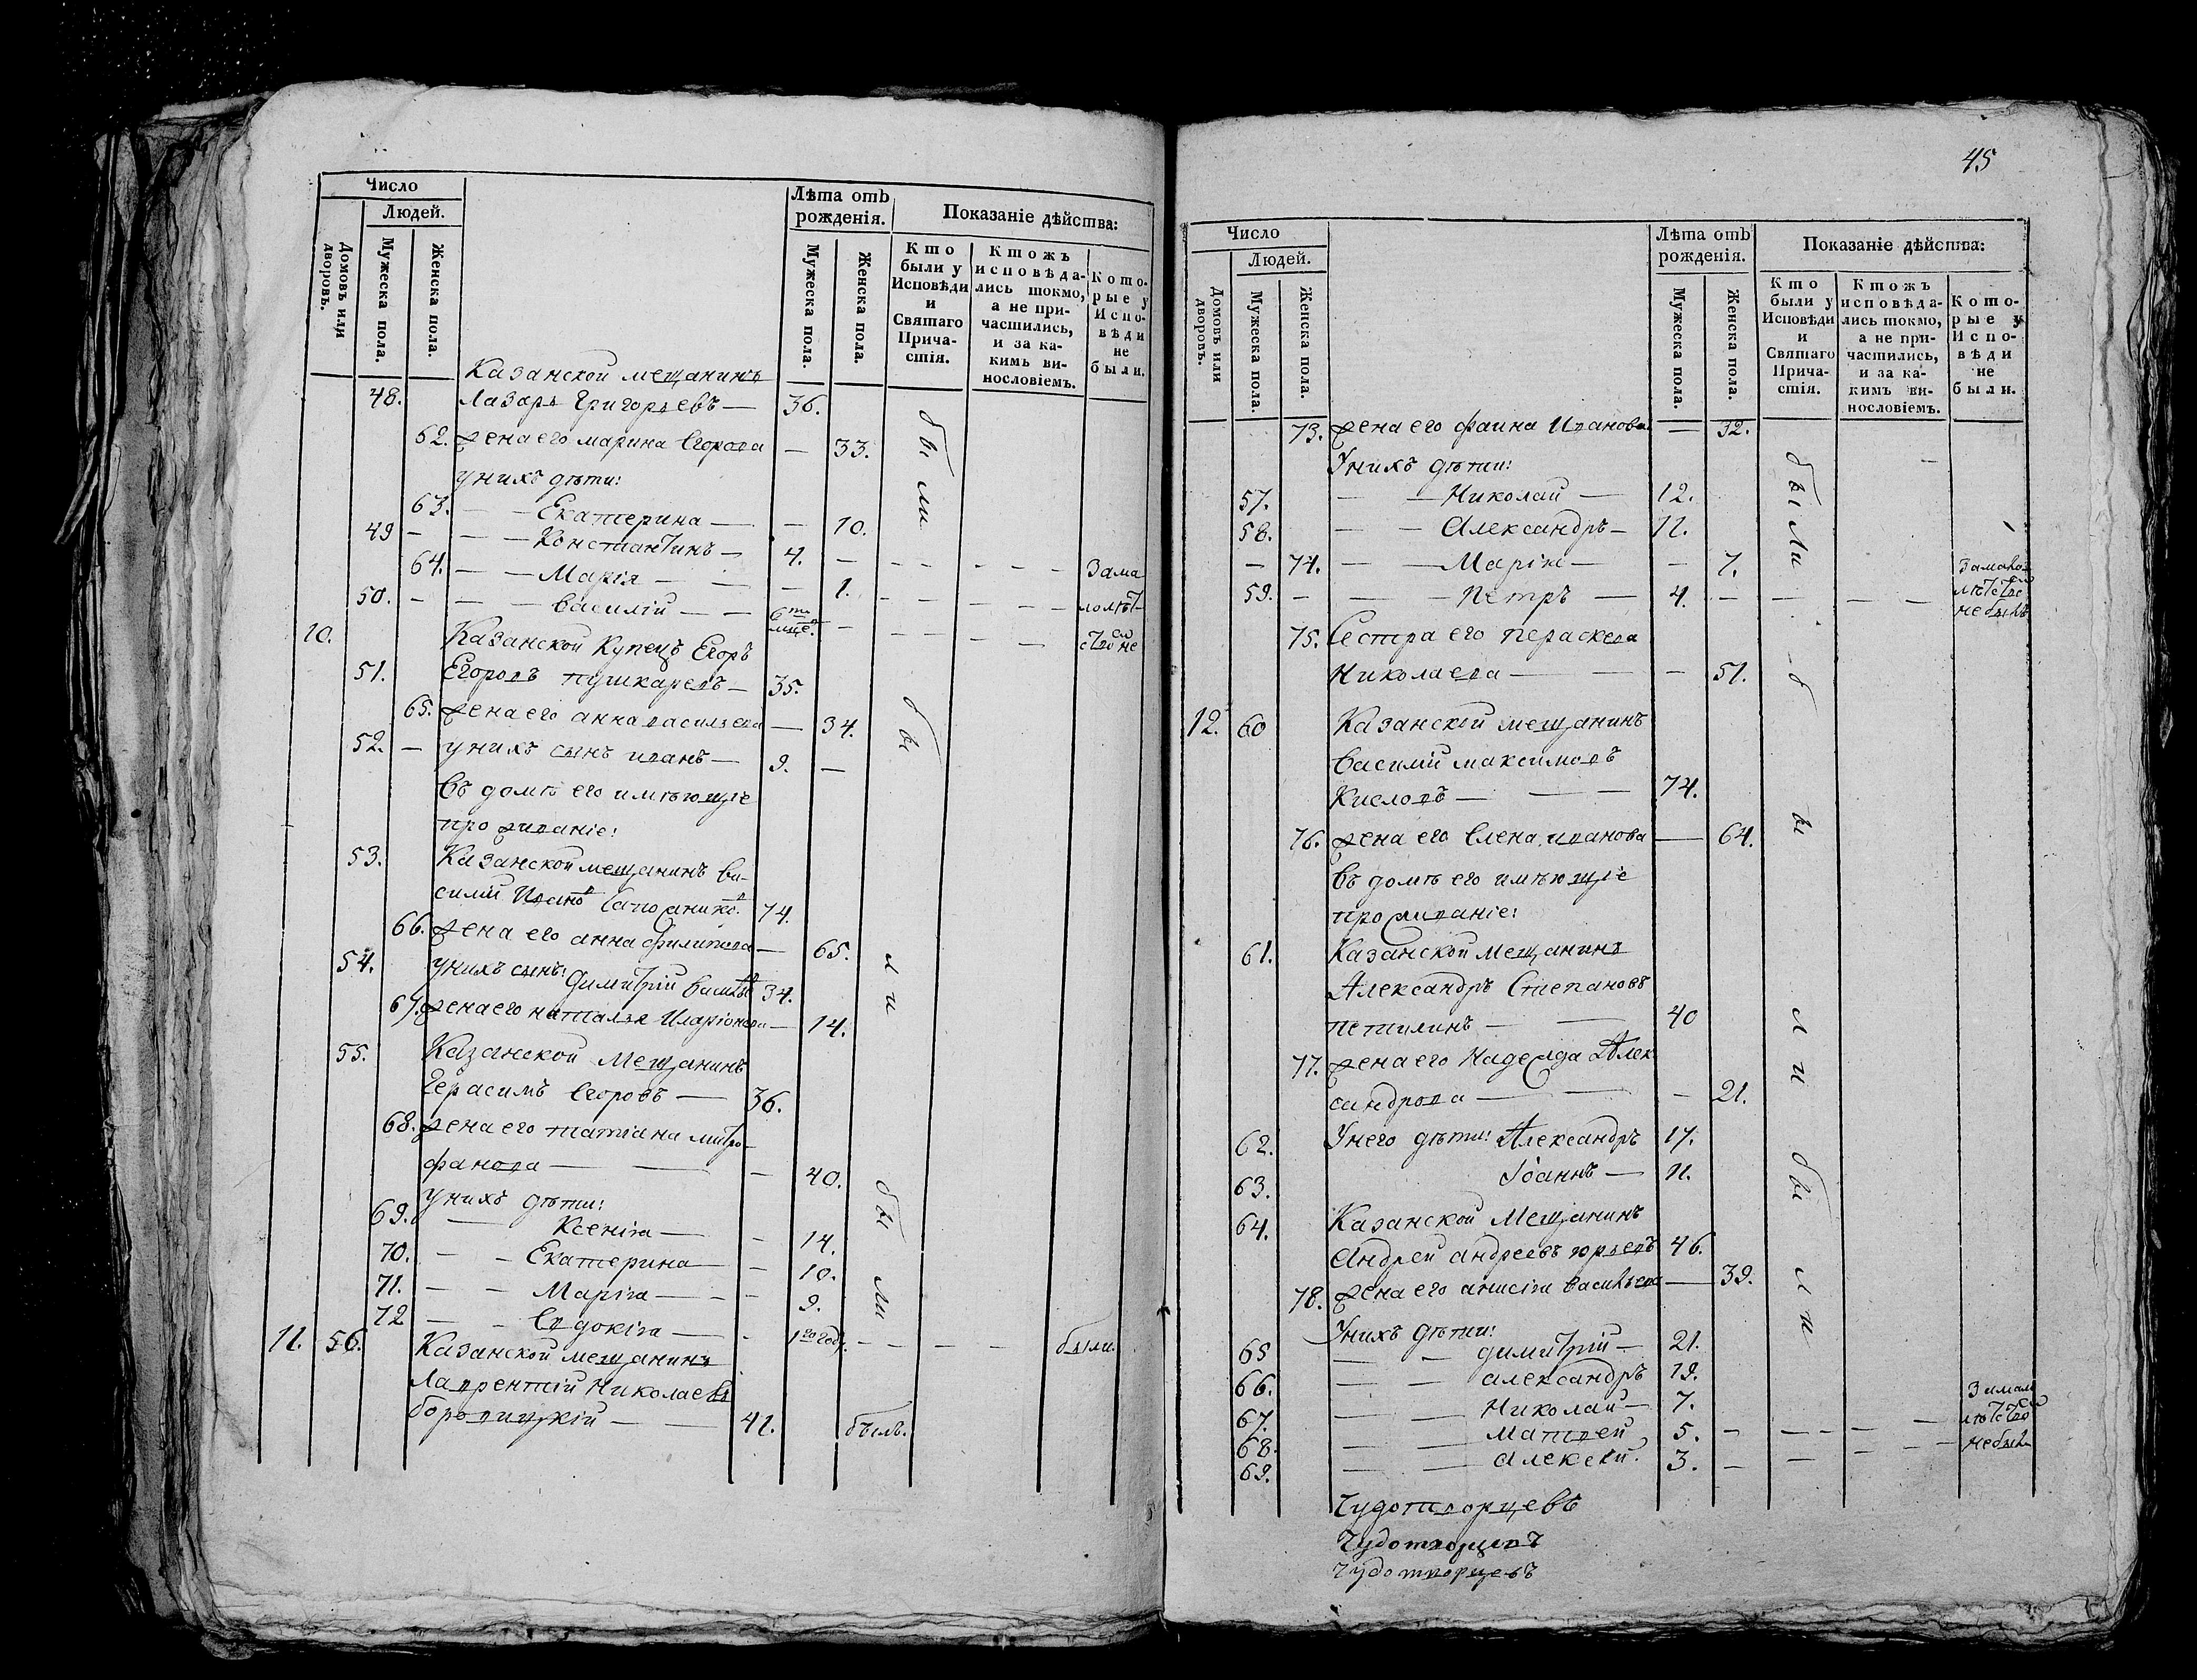 Число
Людей.
Домовъ или дворовъ.
Мужеска пола.
Женска пола.
Лѣта отъ рожденія.
Мужеска пола.
Женска пола.
Показаніе дѣйства:
Кто были у Исповѣди и Святаго Причастія.
Ктожъ исповѣдались токмо, а не причастились, и за какимъ винословіемъ.
Которые у Исповѣди не были.
Казанской мещанинъ
48. Лазарь Григорьевъ — 36.
62. жена его марина Егорова — 33.
были
унихъ дѣти:
63. — — Екатерина — — 10.
49 — — — Константинъ — 4. — — — — — —
64. — — Марія — — — 1. зама
50. — — — василій — — 6ти мце. — — — — — — лолѣт
10. Казанской Купецъ Егоръ ством не
51. Егоровъ пушкаревъ — 35.
65. жена его анна васильева — 34.
52. — унихъ сынъ иванъ — 9. —
бы
въ домѣ его имѣющіе
проживаніе:
53. Казанской мещанинъ ва-
силій Ивано в Сапожнико в. 74.
66. жена его анна филипова — 65.
54. унихъ сынъ: Димитрій василье в 34.
ли
67. жена его наталья Иларіонова — 14.
55. Казанской Мещанинъ
Герасимъ Егоровъ — 36.
68. жена его татіана митро-
фанова — — — 40.
унихъ дѣти:
бы
69. — Ксенія — — 14.
70. — — Екатерина — — 10.
71. — — Марія — — — 9.
ли
72 — — Евдокія — — 1го год. — — — — были.
11. 56. Казанской мещанинъ
Лаврентій Николаевъ
41. былъ.
45
Число
Людей.
Домовъ или дворовъ.
Мужеска пола.
Женска пола.
Лѣта отъ рожденія.
Мужеска пола.
Женска пола.
Показаніе дѣйства:
Кто были у Исповѣди и Святаго Причастія.
Ктожъ исповѣдались токмо, а не причастились, и за какимъ винословіемъ.
Которые у Исповѣди не были.
73. жена его фаина Иванова — 32.
Унихъ дѣти:
57. — — Николай — 12.
были
58. — — Александръ — 11.
— 74. — — Марія — — 7. замало
59. — — — Петръ — 4. — — — — лѣтство небылъ
75. Сестра его параскева
Николаева — — — 51.
12. 60 Казанской мещанинъ
василій максимовъ
Кисловъ — — — 74.
бы
76. жена его Елена иванова — 64.
въ домѣ его имѣющіе
проживаніе:
61. Казанской мещанинъ
Александръ Степановъ
петилинъ — — 40
ли
77. жена его Надежда Алек
сандрова — — — 21.
62. Унего дѣти: Александръ 17.
63. Іоаннъ — 11.
бы
64. Казанской Мещанинъ
Андрей андреевъ юрьевъ 46.
78. жена его анисія васильева — 39.
ли
Унихъ дѣти:
65 — — димитрій — 21.
66. — — александръ 19.
67. — — Николай — 7. замало
68. — — Матвей 5. — — — — лѣтство
69. — — алексей. 3. — — — — небыл
Чудотворцевъ
Чудотворцевъ
Чудотворцевъ